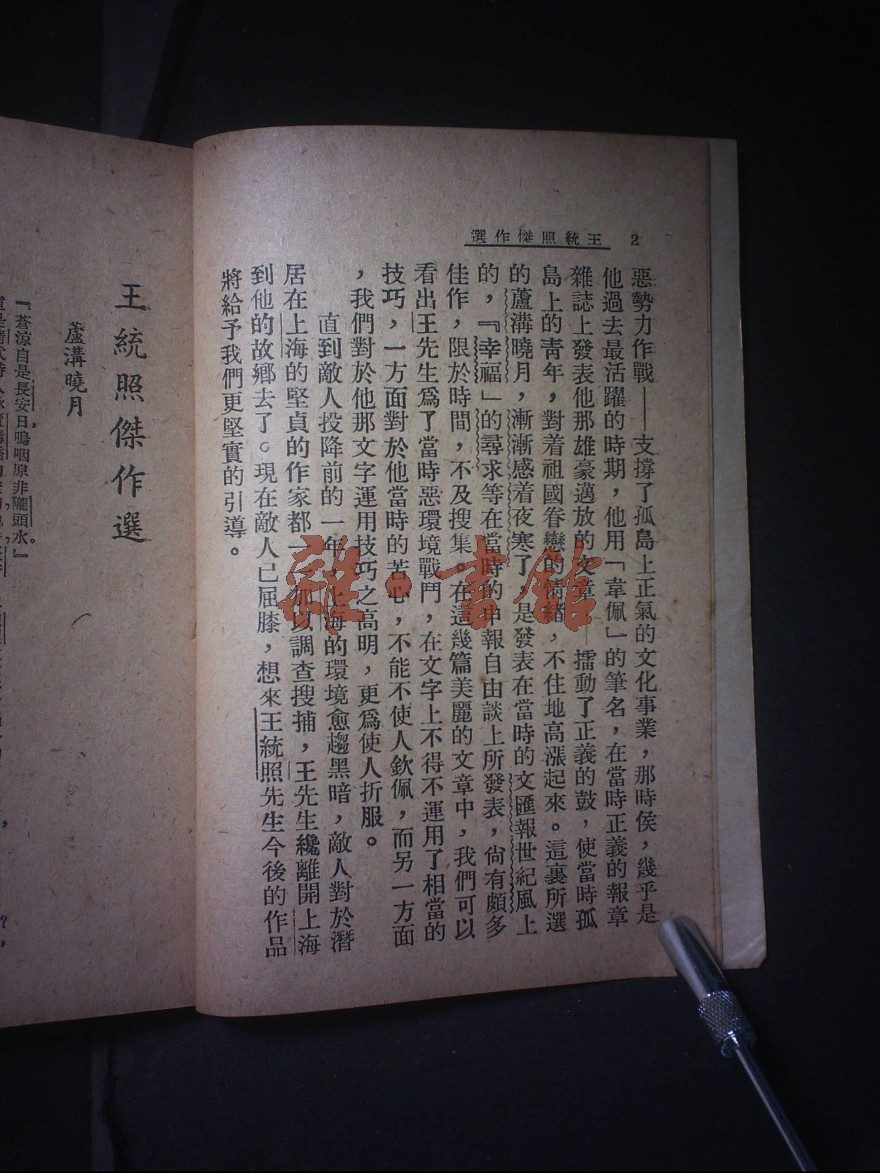 2　王統照傑作選
惡勢力作戰——支撐了孤島上正氣的文化事業，那時侯，幾乎是
他過去最活躍的時期，他用「韋佩」的筆名，在當時正義的報章
雜誌上發表他那雄豪邁放的文章——擂動了正義的鼓，使當時孤
島上的青年，對着祖國眷戀的情緒，不住地高漲起來。這裏所選
的蘆溝曉月，漸漸感着夜寒了，是發表在當時的文匯報世紀風上
的，『幸福」的尋求等在當時的申報自由談上所發表，尙有頗多
佳作，限於時間，不及搜集。在這幾篇美麗的文章中，我們可以
看出王先生爲了當時惡環境戰鬥，在文字上不得不運用了相當的
技巧，一方面對於他當時的苦心，不能不使人欽佩，而另一方面
，我們對於他那文字運用技巧之高明，更爲使人折服。
直到敵人投降前的一年，上海的環境愈趨黑暗，敵人對於潛
居在上海的堅貞的作家都一一加以調查搜捕，王先生纔離開上海
到他的故鄉去了。現在敵人已屈膝，想來王統照先生今後的作品
將給予我們更堅實的引導。
雜·書館
王統照傑作選
蘆溝曉月
『蒼涼自是長安日，嗚咽原非隴頭水。』